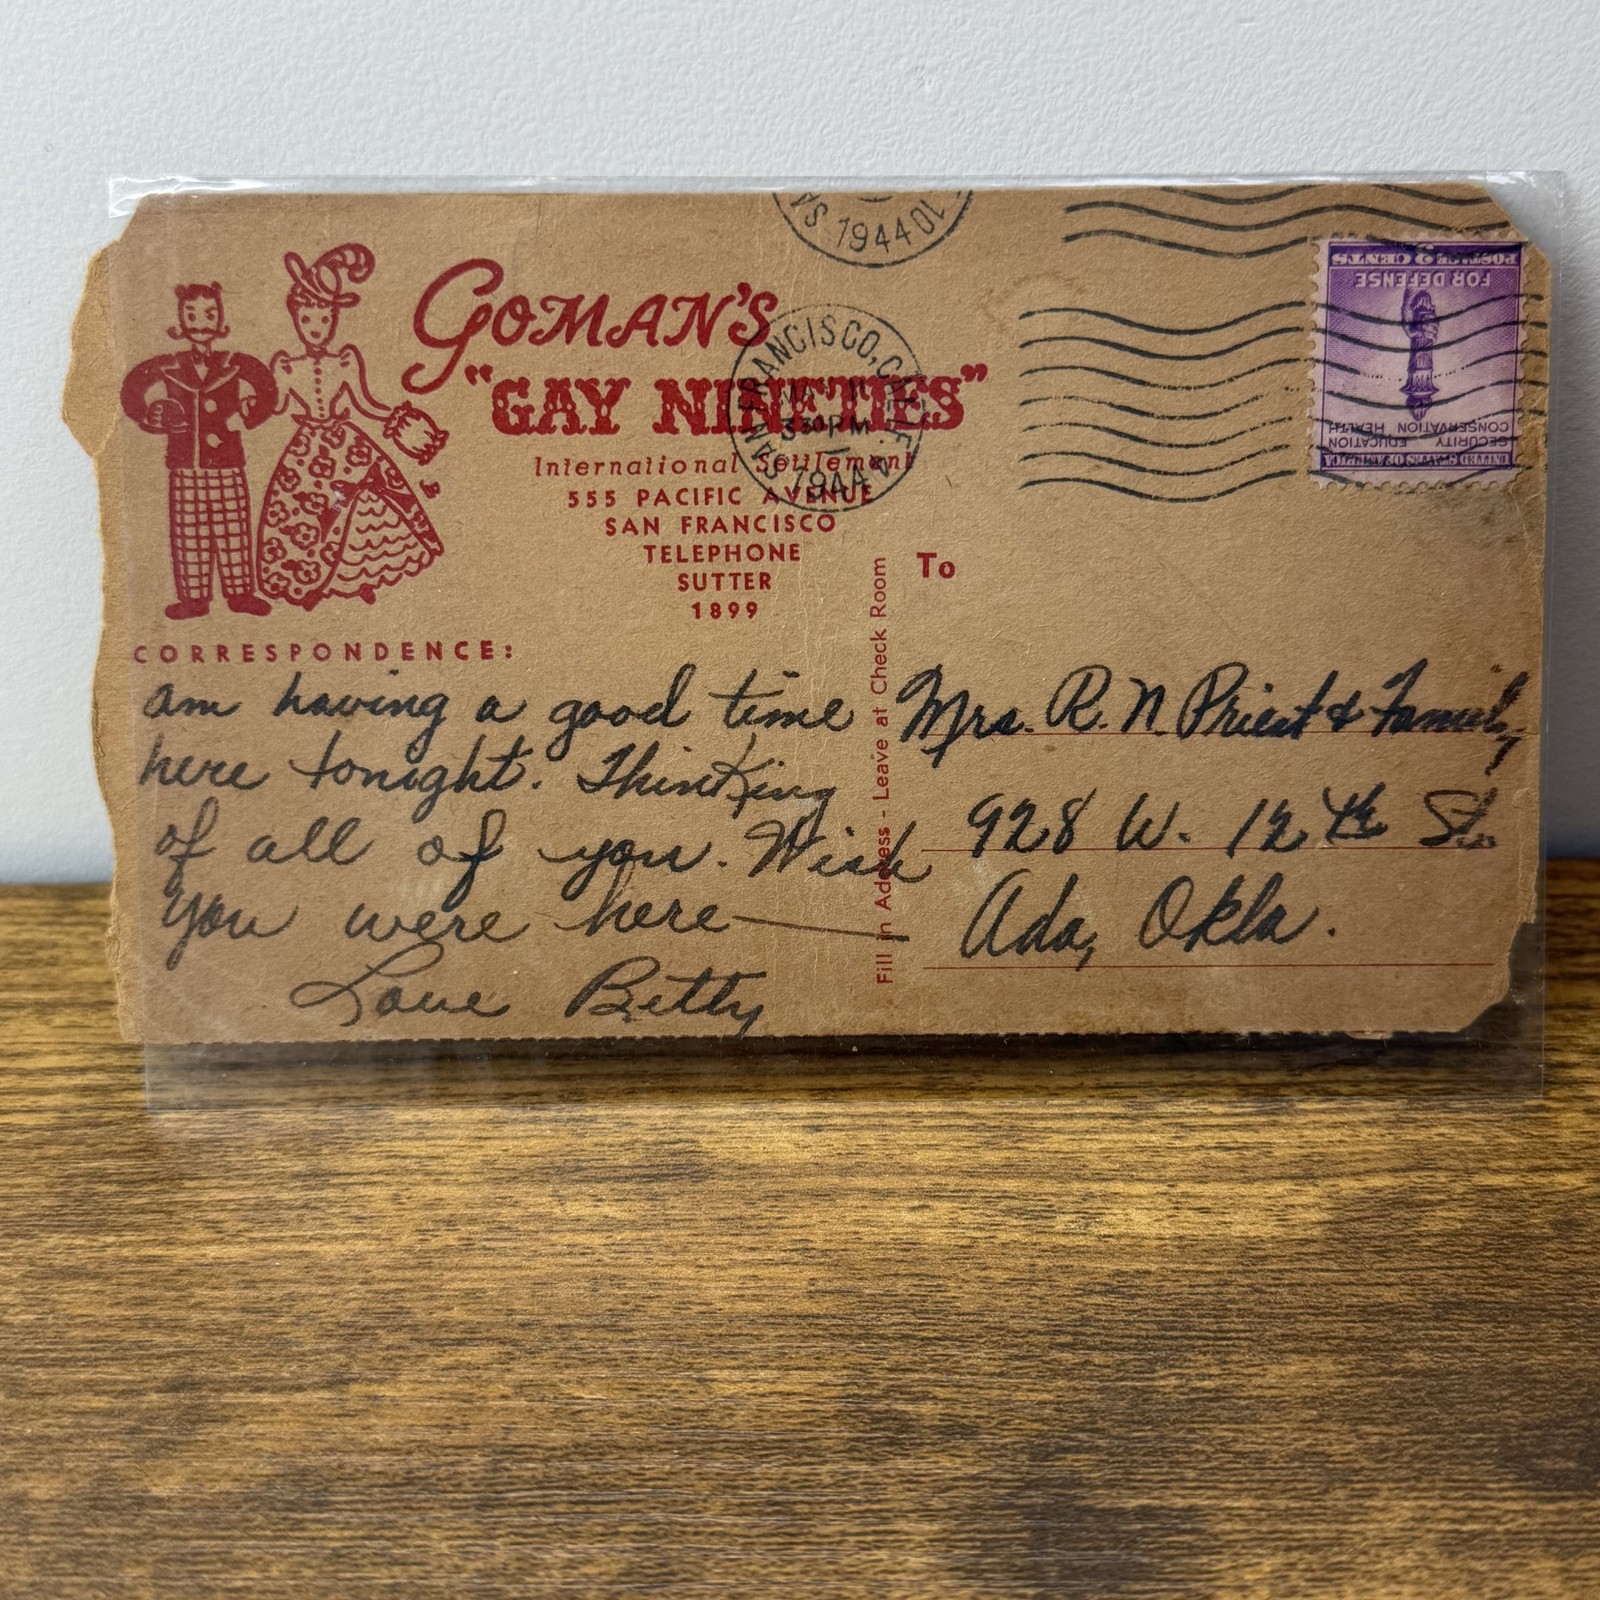 GOMAN'S
"GAY NINETIES"
International Settlement
555 PACIFIC AVENUE
SAN FRANCISCO
TELEPHONE
SUTTER
1899
CORRESPONDENCE:
am having a good time
here tonight. Thinking
of all of you. Wish
you were here—
Love Betty
Fill in Address - Leave at Check Room
To
Mrs. R. N. Priest & Family
928 W. 12th St.
Ada, Okla.
1944
SAN FRANCISCO, CALIF.
330 PM
1944
UNITED STATES OF AMERICA
SECURITY EDUCATION
CONSERVATION HEALTH
FOR DEFENSE
POSTAGE 3 CENTS